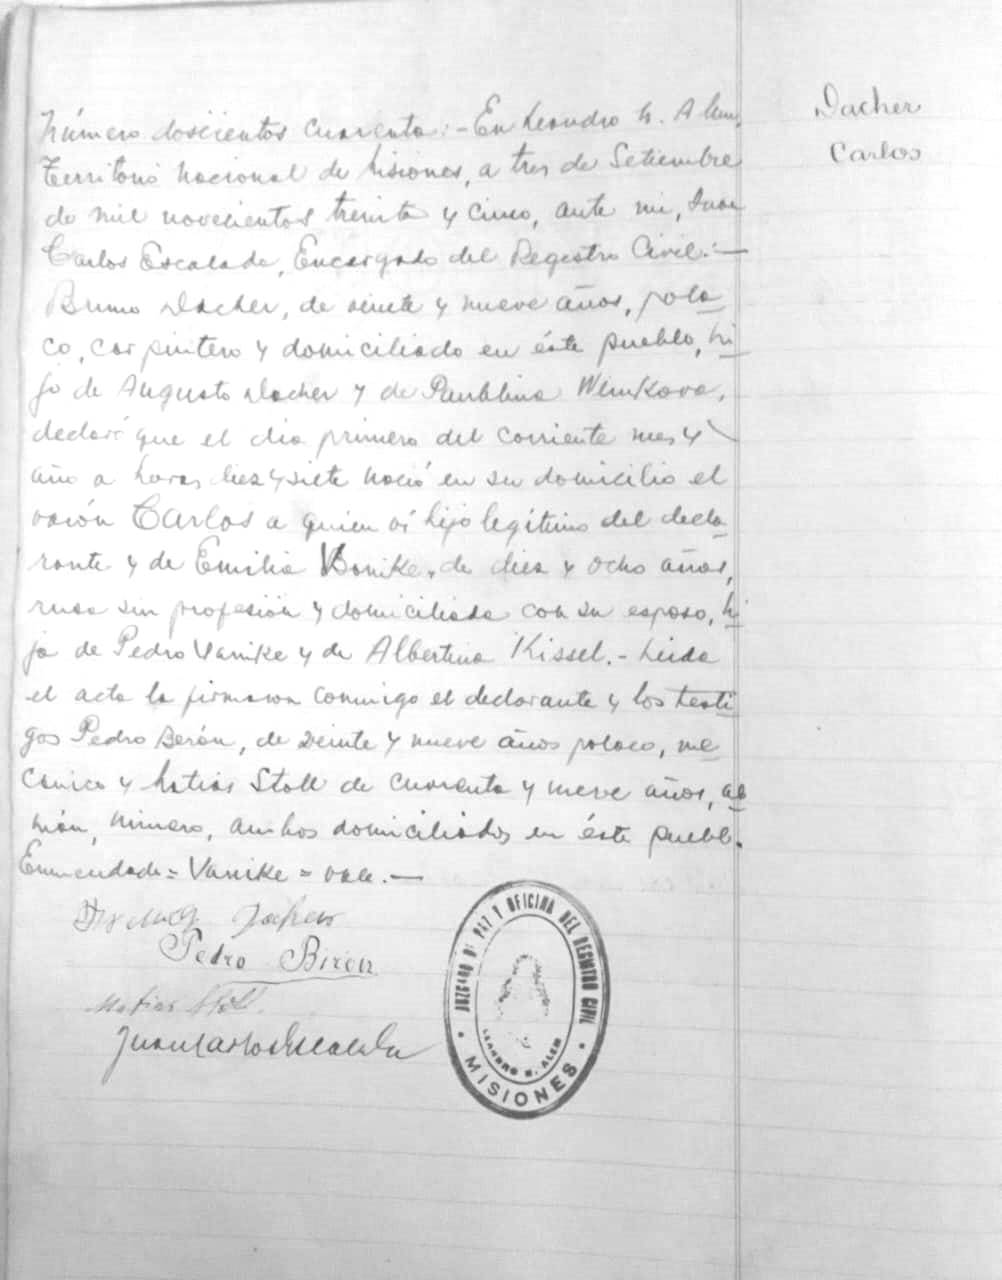 Dacher
Carlos
Número doscientos cuarenta:- En Leandro N. Alem,
Territorio Nacional de Misiones, a tres de Setiembre
de mil novecientos treinta y cinco, ante mi, Juan
Carlos Escalada, Encargado del Registro Civil:—
Bruno Dacher, de veinte y nueve años, pola
co, carpintero y domiciliado en éste pueblo, hi
jo de Augusto Dacher y de Paublina
declaró que el dia primero del corriente mes y
año a horas diez y siete nació en su domicilio el
varón Carlos a quien ví hijo legítimo del decla
rante y de Emilia Vanike, de diez y ocho años,
rusa sin profesión y domiciliada con su esposo, hi
ja de Pedro Vanike y de Albertina Kissel.- Leida
el acta la firmaron conmigo el declarante y los testi
gos Pedro Berón, de veinte y nueve años polaco, me
cánico y Matias Stoll de cuarenta y nueve años, ale
mán, minero, ambos domiciliados en éste pueblo.
Enmendado = Vanike = vale.—
Pedro Biron
Matias Stoll.
Juan Carlos Escalada
JUZGADO DE PAZ Y OFICINA DEL REGISTRO CIVIL
LEANDRO N. ALEM
MISIONES